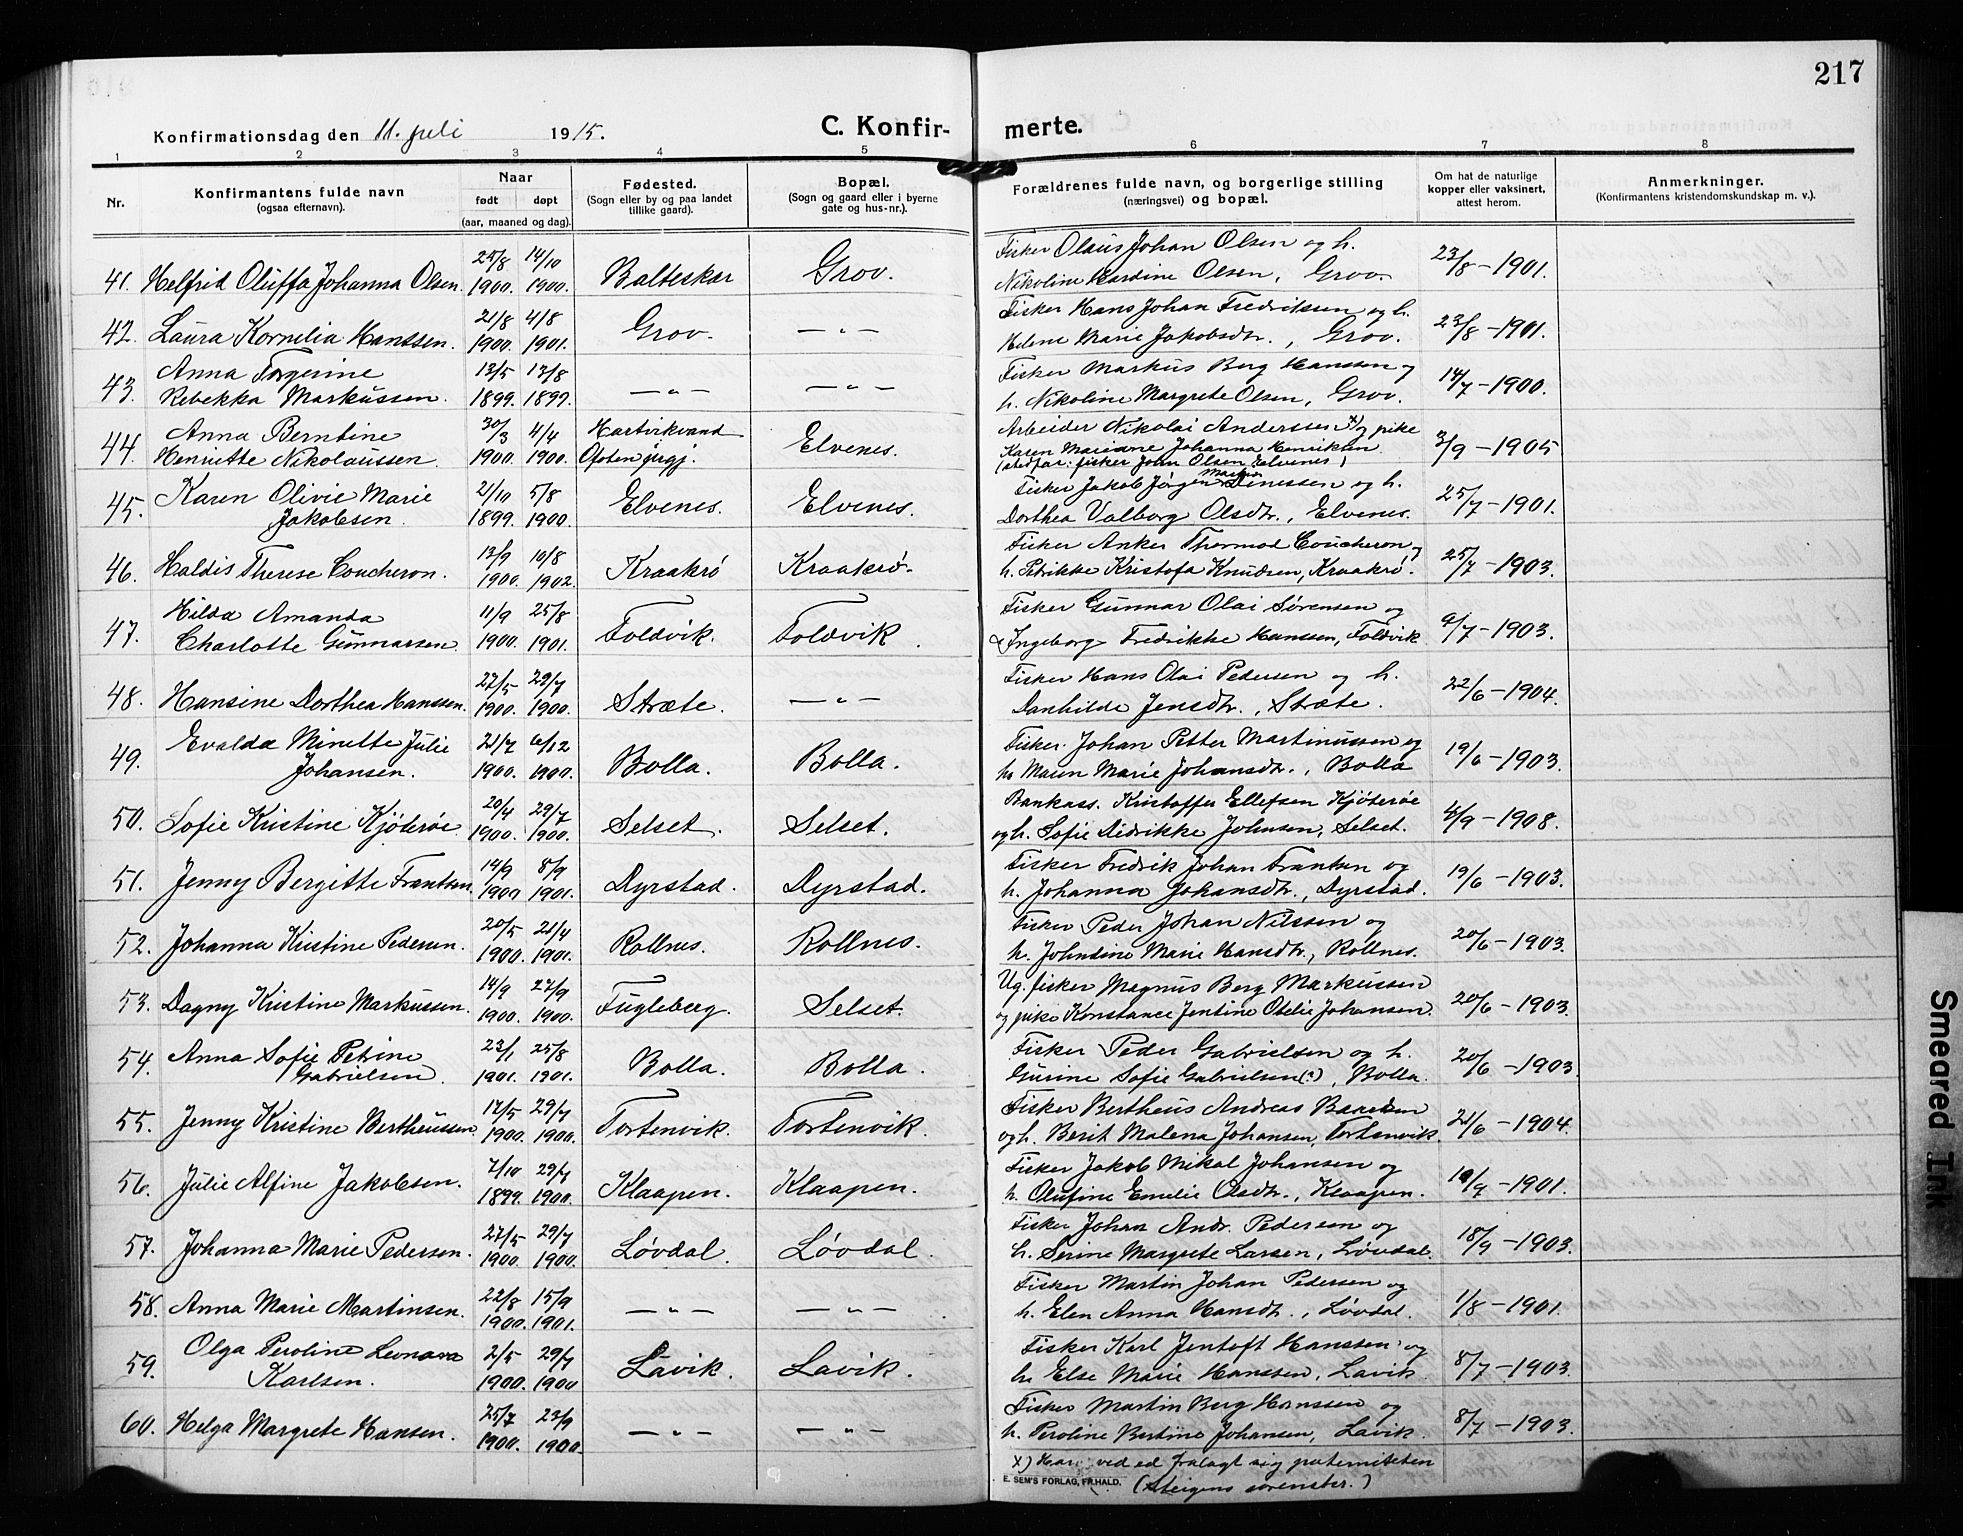 217
Konfirmationsdag den 11. juli 1915.
C. Konfir- merte.
1 2 3 4 5 6 7 8
Nr.
Konfirmantens fulde navn
(ogsaa efternavn).
Naar
født døpt
(aar, maaned og dag).
Fødested.
(Sogn eller by og paa landet
tillike gaard).
Bopæl.
(Sogn og gaard eller i byerne
gate og hus-nr.).
Forældrenes fulde navn, og borgerlige stilling
(næringsvei) og bopæl.
Om hat de naturlige
kopper eller vaksinert,
attest herom.
Anmerkninger.
(Konfirmantens kristendomskundskap m. v.).
41. Helfrid Oluffa Johanna Olsen. 25/8 1900. 14/10 1900. Balteskar Grov. Fisker Olaus Johan Olsen og h.
Nikoline Hardine Olsen, Grov. 23/8-1901.
42. Laura Kornelia Hanssen. 21/8 1900. 4/8 1901. Grov. —"— Fisker Hans Johan Fredriksen og h.
Helene Marie Jakobsdtr., Grov. 23/8-1901.
43. Anna Torgerine
Rebekka Markussen. 13/5 1899. 13/8 1899. —"— —"— Fisker Markus Berg Hanssen og
h. Nikoline Margrete Olsen, Grov. 14/7-1900.
44. Anna Berntine
Henriette Nikolaussen. 30/3 1900. 4/4 1900. Hartvikvand
Ofoten prgj. Elvenes. Arbeider Nikolai Anderssen x) og pike
Karen Mariane Johanna Henriksen
(stedfar: fisker John Olsen Elvenes) 3/9-1905
45. Karen Olivie Marie
Jakobsen. 21/10 1899. 5/8 1900. Elvenes. Elvenes. Fisker Jakob Jørgen Martin Dinessen og h.
Dorthea Valborg Olsdtr., Elvenes. 25/7-1901.
46. Haldis Therese Coucheron. 13/9 1900. 10/8 1902. Kraakrø Kraakrø. Fisker Anker Thormod Coucheron og
h. Petrikke Kristofa Knudsen, Kraakrø. 25/7-1903.
47. Hilda Amanda
Charlotte Gunnarsen. 11/9 1900. 25/8 1901. Foldvik. Foldvik. Fisker Gunnar Olai Sørensen og
Ingeborg Fredrikke Hanssen, Foldvik. 9/7-1903.
48. Hansine Dorthea Hanssen. 27/5 1900. 29/7 1900. Stræte. —"— Fisker Hans Olai Pedersen og h.
Danhilde Jensdtr., Stræte. 22/6-1904.
49. Evalda Minette Julie
Johansen. 21/7 1900. 6/12 1900. Bolla. Bolla. Fisker Johan Petter Martinussen og
h. Maren Marie Johansdtr., Bolla 19/6-1903.
50. Sofie Kristine Kjøterøe. 20/4 1900. 29/7 1900. Selset. Selset. Bankass. Kristoffer Ellefsen Kjøterøe
og h. Sofie Didrikke Johnsen, Selset. 4/9-1908.
51. Jenny Bergitte Frantsen. 14/9 1900 8/9 1901. Dyrstad. Dyrstad. Fisker Fredrik Johan Frantsen og
h. Johanna Johansdtr., Dyrstad. 19/6-1903.
52. Johanna Kristine Pedersen. 20/5 1900. 21/4 1901. Rollnes. Rollnes. Fisker Peder Johan Nilssen og
h. Johndine Marie Hansdtr., Rollnes. 20/6-1903.
53. Dagny Kristine Markussen. 14/9 1900. 27/9 1900. Fugleberg. Selset. Ug. fisker Magnus Berg Markussen
og pike Konstance Jentine Otelie Johansen. 20/6-1903.
54. Anna Sofie Petrine
Gabrielsen. 23/1 1901. 25/8 1901. Bolla. Bolla. Fisker Peder Gabrielsen og h.
Gurine Sofie Gabrielsen(?), Bolla. 20/6-1903.
55. Jenny Kristine Bertheussen. 17/5 1900. 29/7 1900. Tortenvik. Tortenvik. Fisker Bertheus Andreas
og h. Berit Malena Johansen, Tortenvik. 21/6-1904.
56. Julie Alfine Jakobsen. 7/10 1899. 29/7 1900. Klaapen. Klaapen. Fisker Jakob Mikal Johansen og
h. Olufine Emelie Olsdtr., Klaapen. 19/7-1901.
57. Johanna Marie Pedersen. 27/5 1900. 29/7 1900. Løvdal. Løvdal. Fisker Johan Andr. Pedersen og
h. Serine Margrete Larsen, Løvdal. 18/9-1903.
58. Anna Marie Martinsen. 22/8 1900. 15/9 1901. —"— —"— Fisker Martin Johan Pedersen og
h. Elen Anna Hansdtr., Løvdal. 1/8-1901.
59. Olga Peroline Leonora
Karlsen. 2/5 1900. 29/7 1900 Lavik. Lavik. Fisker Karl Jentoft Hanssen og
h. Else Marie Hanssen, Lavik. 8/7-1903.
60. Helga Margrete Hansen. 25/7 1900. 23/9 1900. —"— —"— Fisker Martin Berg Hanssen og
h. Peroline Bertine Johansen, Lavik. 8/7-1903.
x) Har ved ed fralagt sig paterniteten
(Steigens sorenskr.)
E. SEM'S FORLAG, FR.HALD.
Smeared Ink